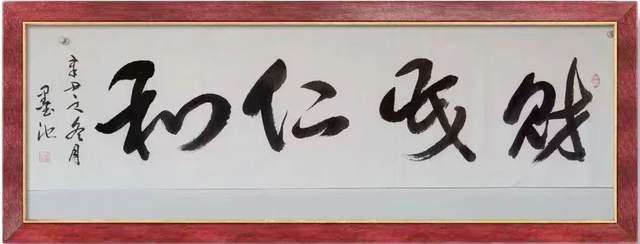 财仁和
辛丑之冬月
墨池